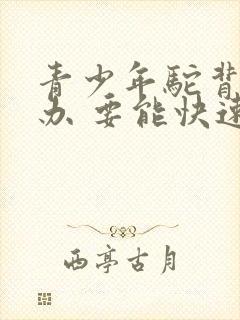 青少年駝背
办 要能快速
西亭古月